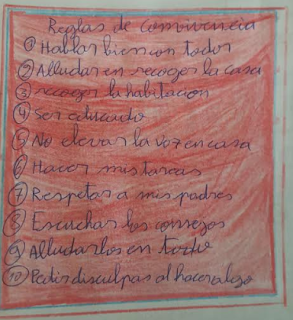 Reglas de convivencia
1 Hablar bien con todos
2 Alludar en recoger la casa
3 recoger la habitacion
4 Ser educado
5 No elevar la voz en casa
6 Hacer mis tareas
7 Respetar a mis padres
8 Escuchar los consejos
9 Alludarlos en todo
10 Pedir disculpas al hacer algo